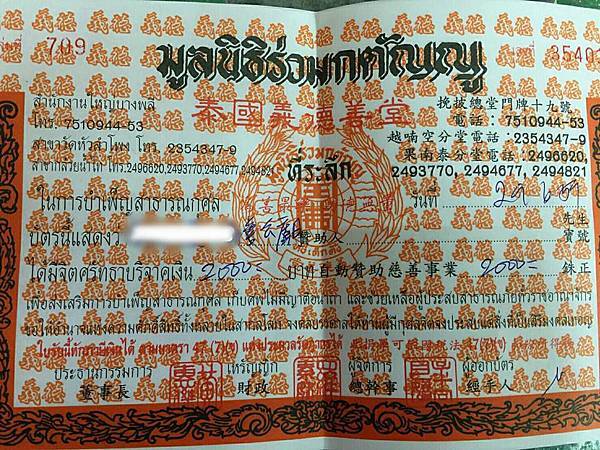 เล่มที่ 709
เลขที่ 3540
มูลนิธิร่วมกตัญญู
泰國義德善堂
สำนักงานใหญ่บางพลี
โทร. 7510944-53
สาขาวัดหัวลำโพง โทร. 2354347-9
สาขากล้วยน้ำไท โทร.2496620,2493770,2494677,2494821
挽披總堂門牌十九號
電話：7510944-53
越喃空分堂電話：2354347-9
東南泰分堂電話：2496620,
2493770, 2494677, 2494821
ที่ระลึก
ในการบำเพ็ญสาธารณกุศล
วันที่
บัตรนี้แสดงว่า
贊助人
先生
寶號
ได้มีจิตศรัทธาบริจาคเงิน 2,000= บาท自動贊助慈善事業 2000= 銖正
เพื่อส่งเสริมการบำเพ็ญสาธารณกุศล เก็บศพไม่มีญาติอนาถา และช่วยเหลือผู้ประสบสาธารณภัยทั่วราชอาณาจักร
ใบรับนี้หักภาษีเงินได้ ตามมาตรา 47 (7)(ข) แห่งประมวลรัษฎากรได้
ประธานกรรมการ
董事長
เหรัญญิก
財政
ผู้จัดการ
總幹事
ผู้ออกบัตร
經手人